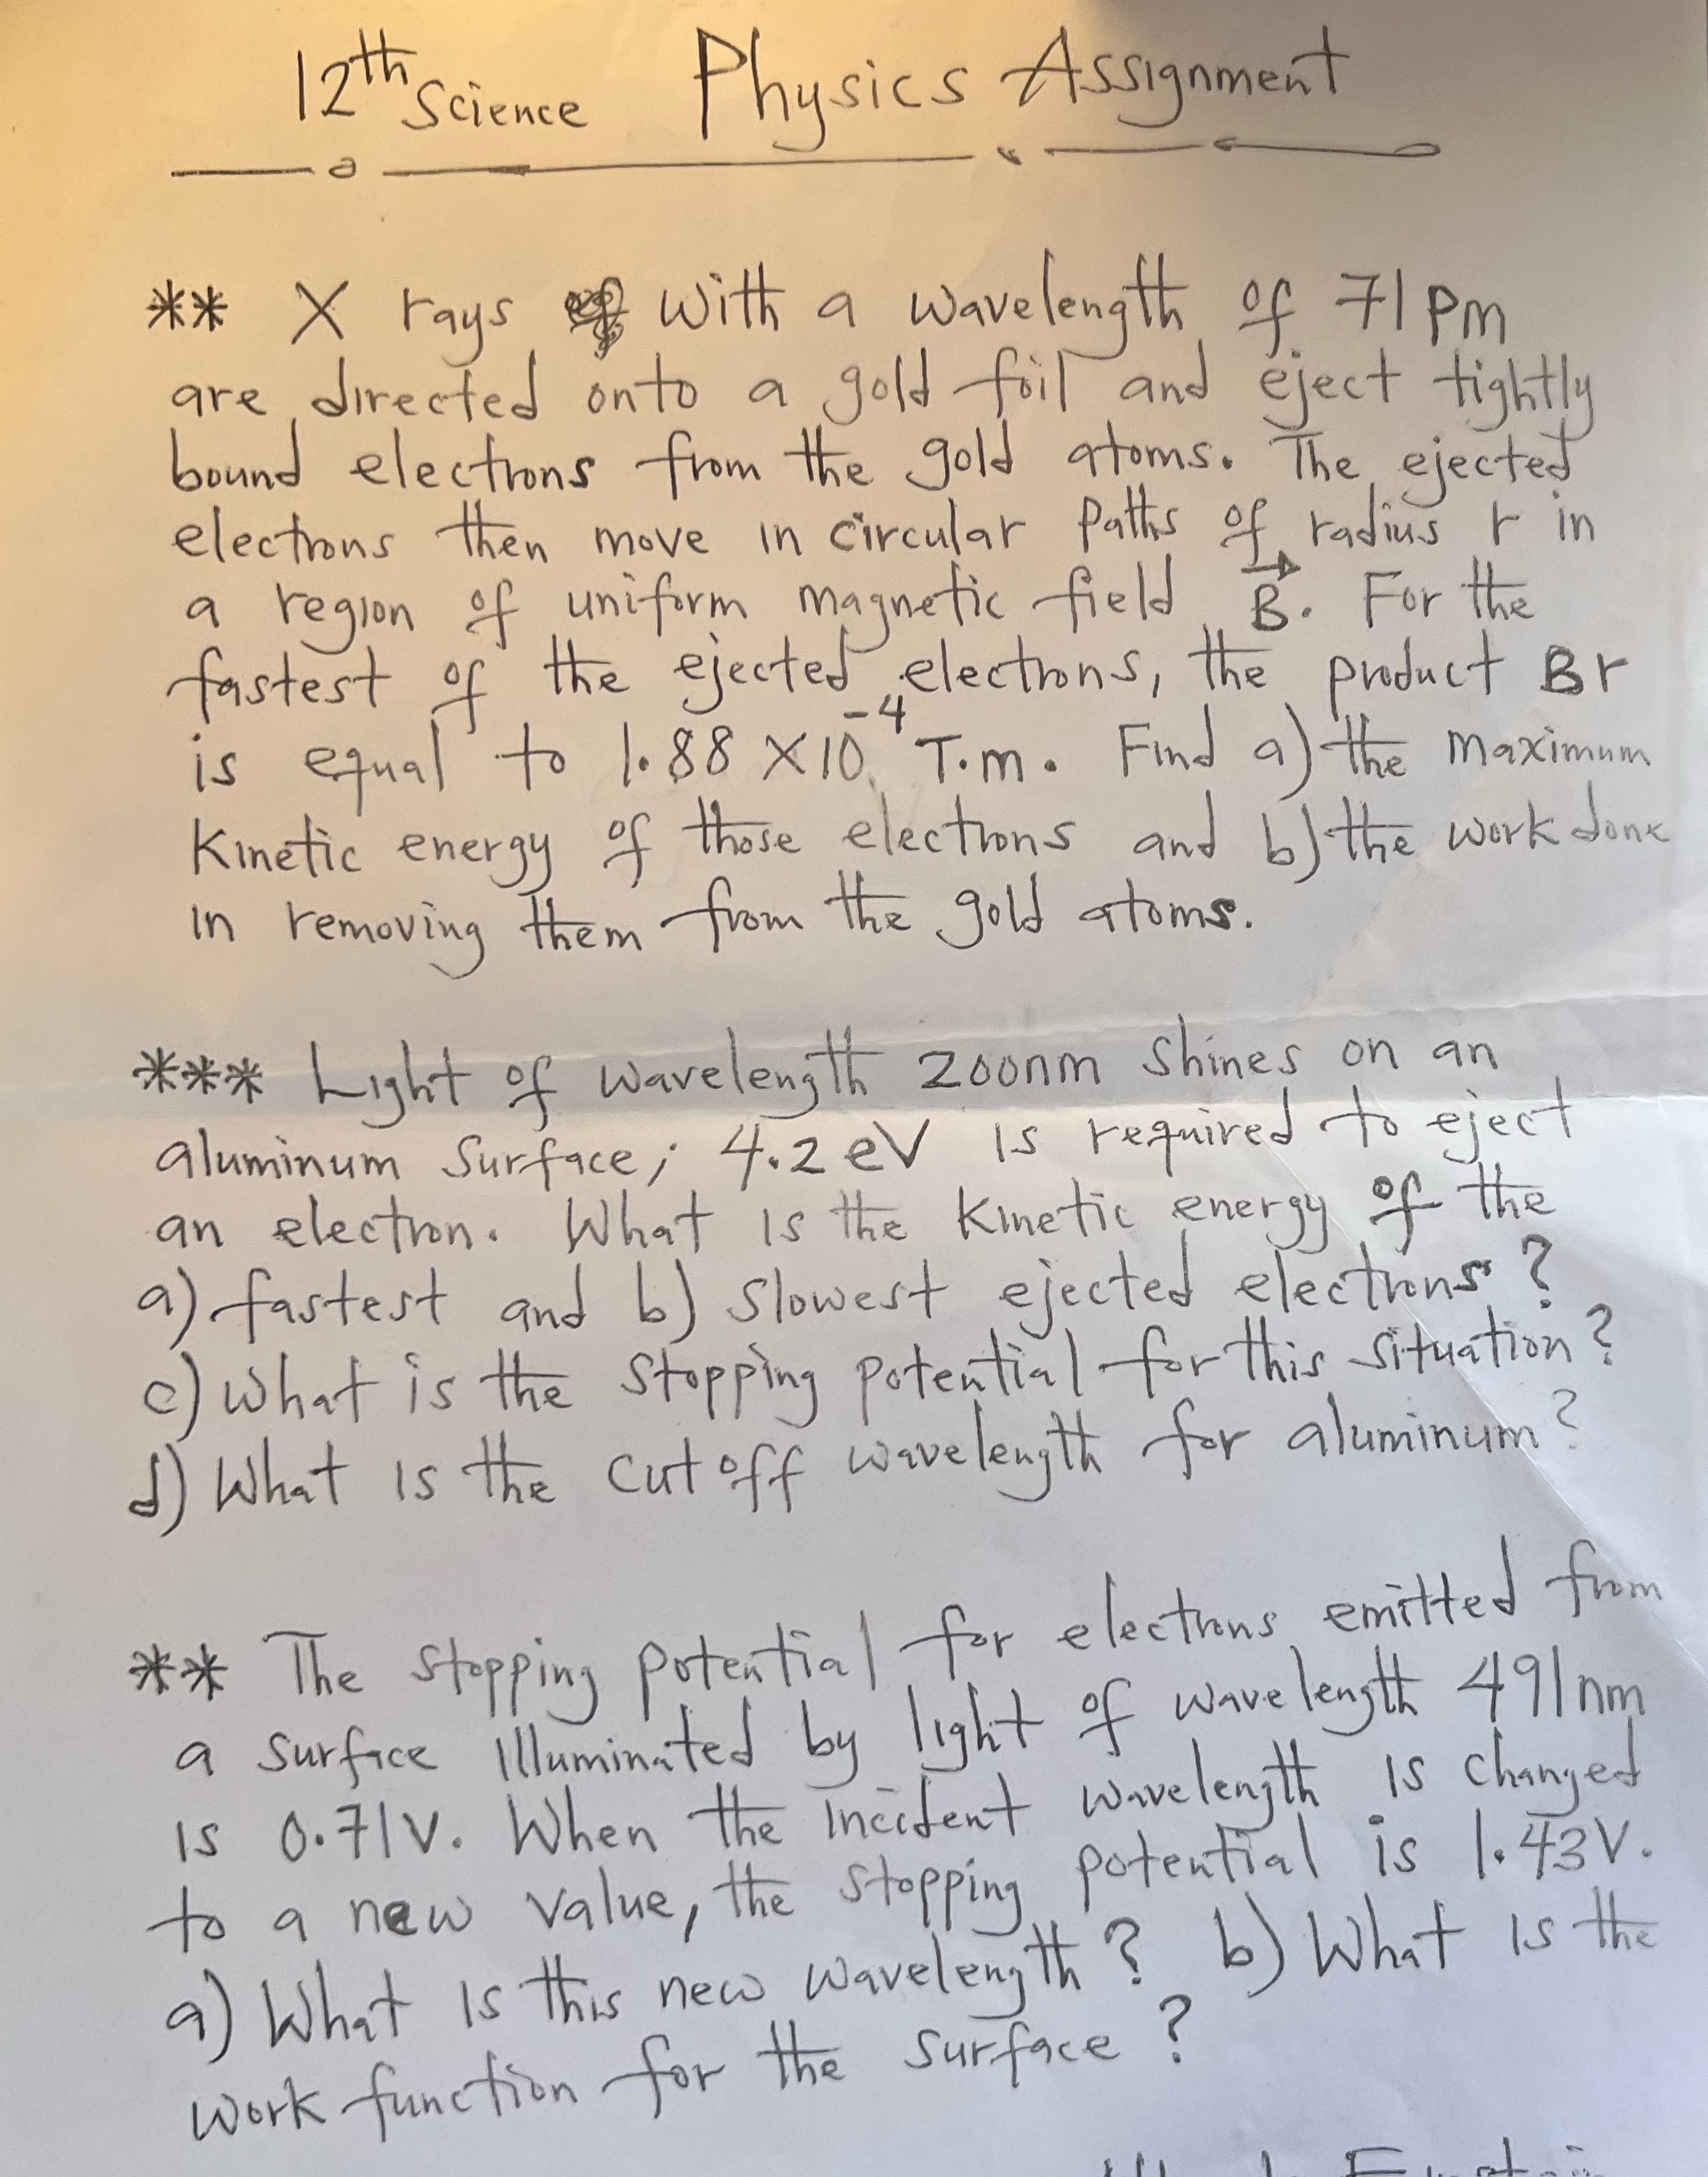 12th Science Physics Assignment
** X rays with a wavelength of 71 pm
are directed onto a gold foil and eject tightly
bound electrons from the gold atoms. The ejected
electrons then move in circular paths of radius r in
a region of uniform magnetic field B⃗. For the
fastest of the ejected electrons, the product Br
is equal to 1.88 X10⁻⁴ T.m. Find a) the maximum
Kinetic energy of those electrons and b) the work done
in removing them from the gold atoms.
*** Light of wavelength 200nm shines on an
aluminum surface; 4.2 eV is required to eject
an electron. What is the Kinetic energy of the
a) fastest and b) slowest ejected electrons?
c) what is the stopping potential for this situation?
d) What is the cut off wavelength for aluminum?
** The stopping potential for electrons emitted from
a surface illuminated by light of wavelength 491nm
is 0.71V. When the incident wavelength is changed
to a new value, the stopping potential is 1.43V.
a) What is this new wavelength? b) What is the
work function for the surface?